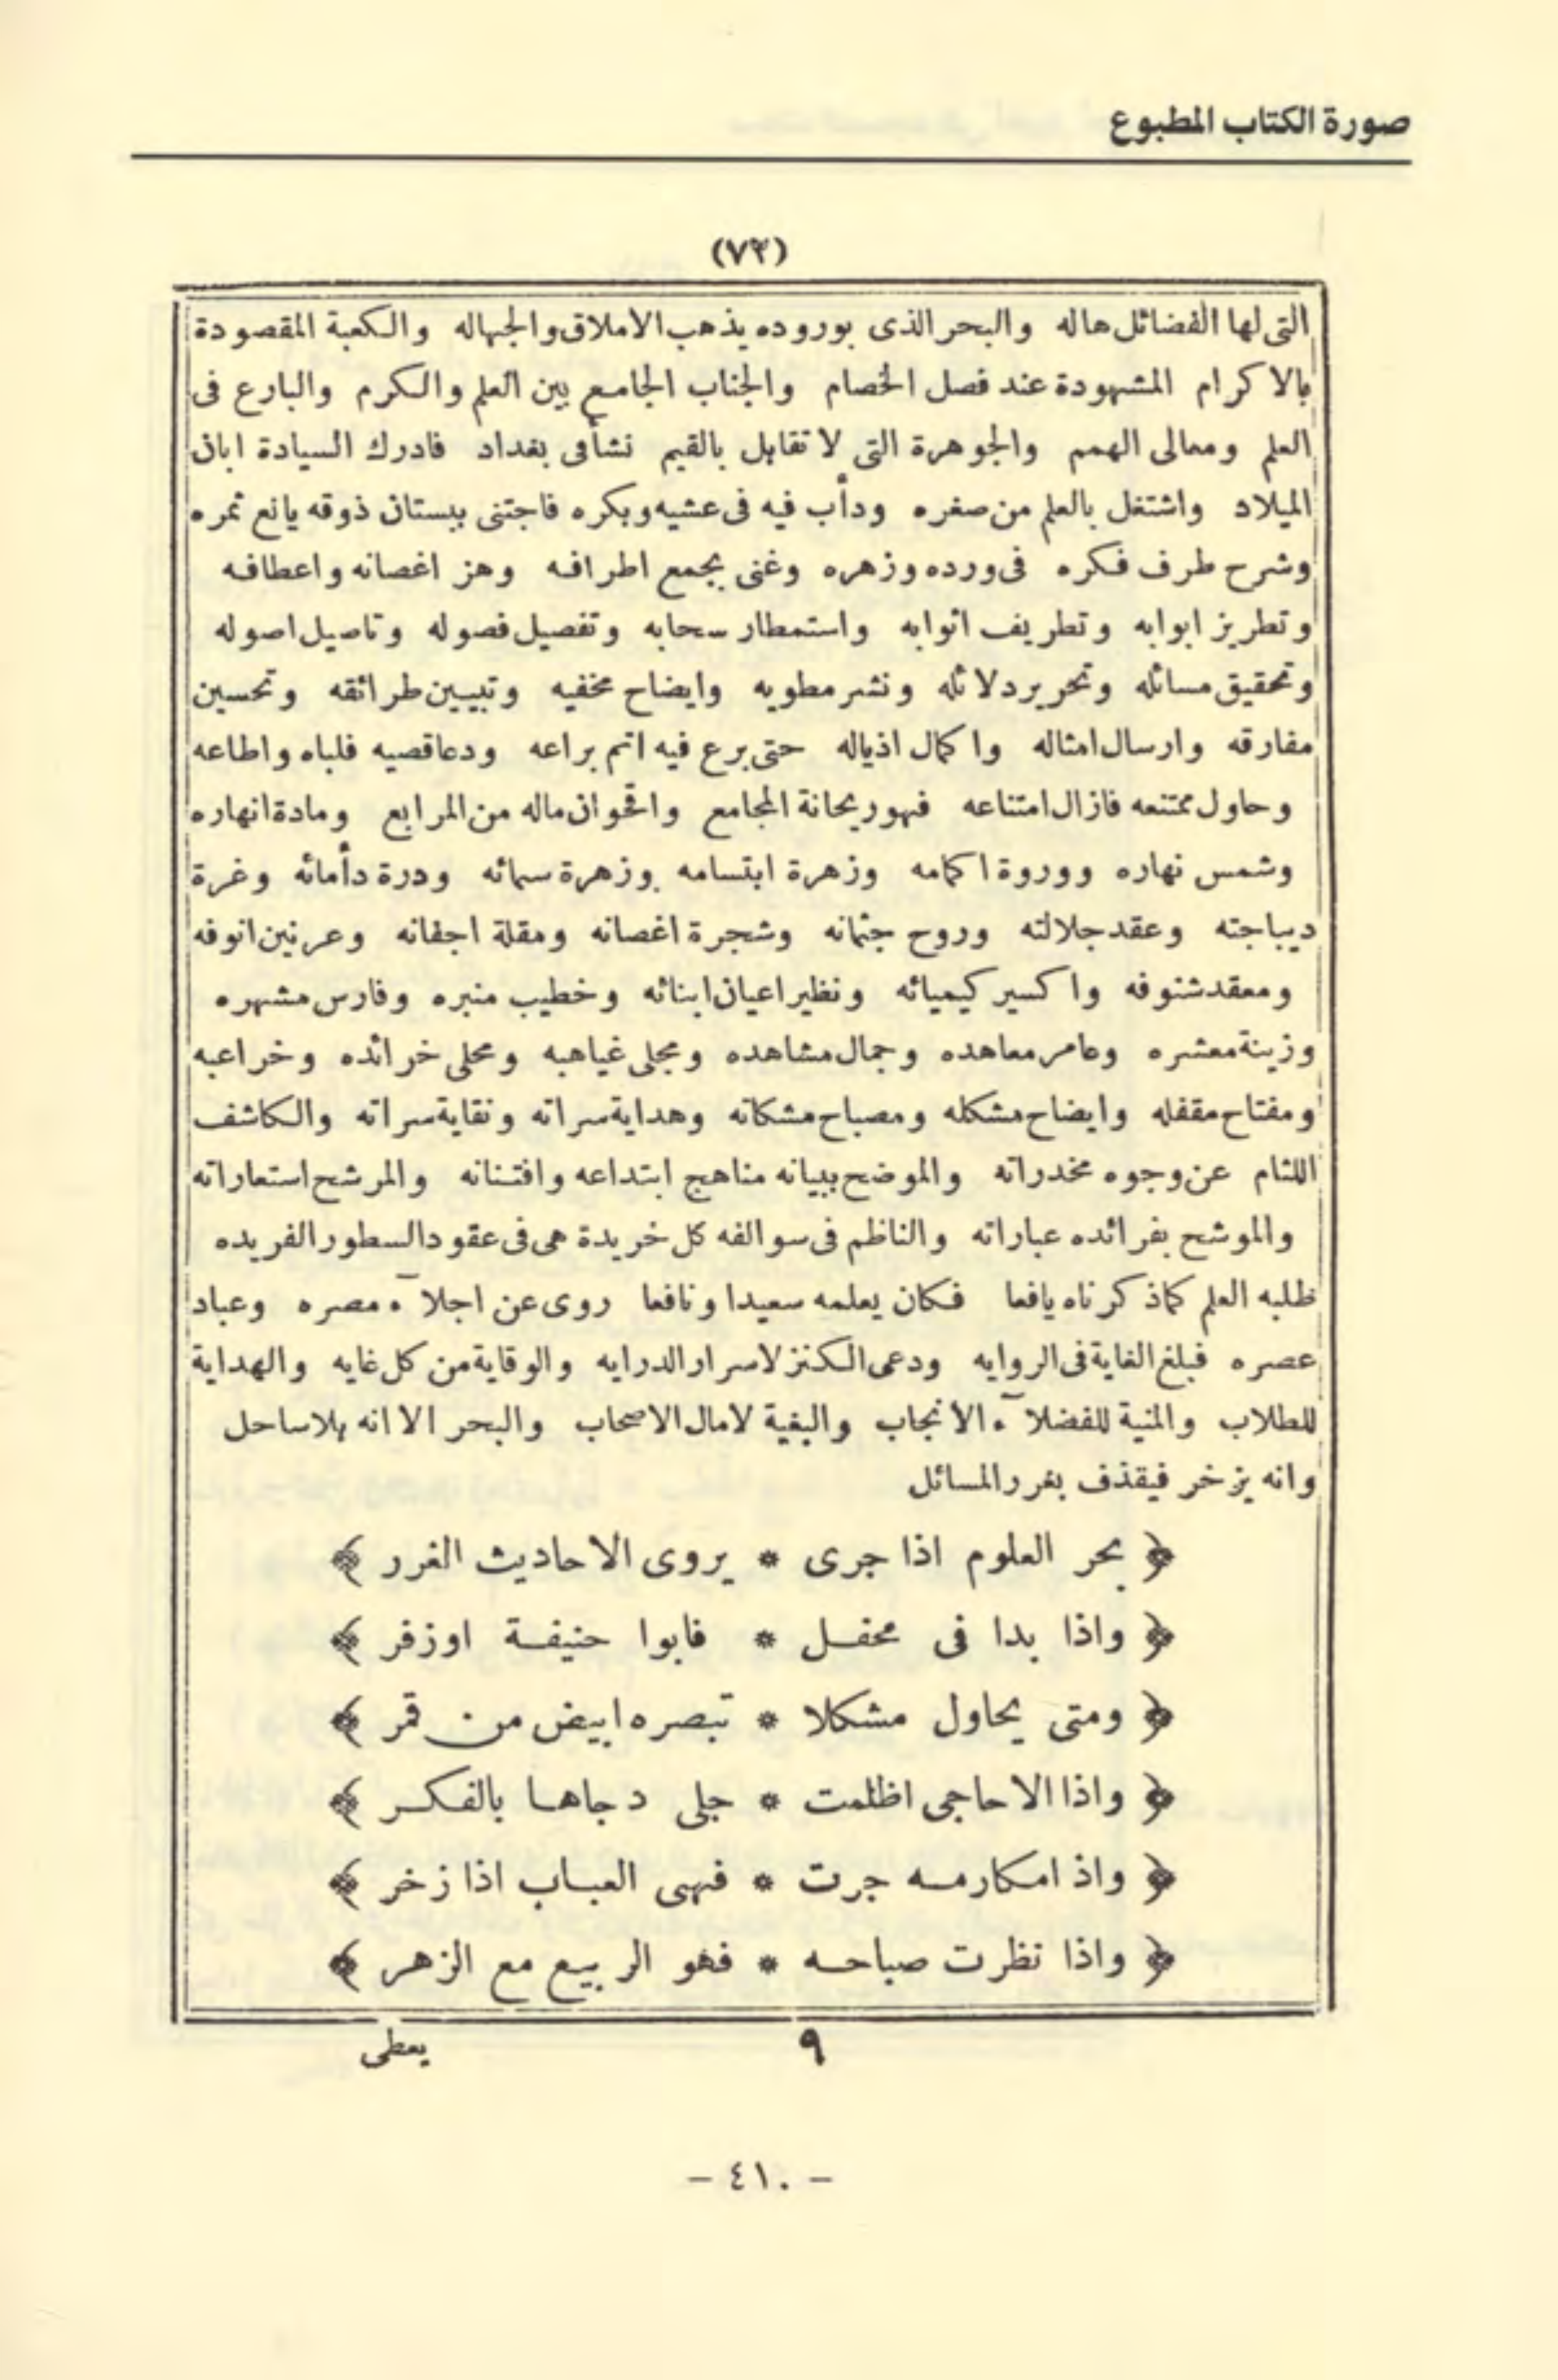 صورة الكتاب المطبوع
(٧٣)
التى لها الفضائل هاله والبحر الذى بوروده يذهب الاملاق والجهاله والكعبة المقصودة
بالاكرام المشهودة عند فصل الخصام والجناب الجامع بين العلم والكرم والبارع فى
العلم ومعالى الهمم والجوهرة التى لا تقابل بالقيم نشأ فى بغداد فادرك السيادة ابان
الميلاد واشتغل بالعلم من صغره ودأب فيه فى عشيه وبكره فاجتنى ببستان ذوقه يانع ثمره
وشرح طرف فكره فى ورده وزهره وغنى بجمع اطرافه وهز اغصانه واعطافه
وتطريز ابوابه وتطريف اثوابه واستمطار سحابه وتفصيل فصوله وتاصيل اصوله
وتحقيق مسائله وتحرير دلائله ونشر مطويه وايضاح مخفيه وتبيين طرائقه وتحسين
مفارقه وارسال امثاله واكمال اذياله حتى برع فيه اتم براعه ودعا قصيه فلباه واطاعه
وحاول ممتنعه فازال امتناعه فهو ريحانة المجامع واقحوان ماله من المرابع ومادة انهاره
وشمس نهاره ووروة اكمامه وزهرة ابتسامه وزهرة سمائه ودرة دأمائه وغرة
ديباجته وعقد جلالته وروح جثمانه وشجرة اغصانه ومقلة اجفانه وعرنين انوفه
ومعقد شنوفه واكسير كيميائه ونظير اعيان ابنائه وخطيب منبره وفارس مشهره
وزينة معشره وعامر معاهده وجمال مشاهده ومجلى غياهبه ومحلى خرائده وخراعبه
ومفتاح مقفله وايضاح مشكله ومصباح مشكاته وهداية سراته ونقاية سراته والكاشف
اللثام عن وجوه مخدراته والموضح ببيانه مناهج ابتداعه وافتنانه والمرشح استعاراته
والموشح بفرائده عباراته والناظم فى سوالفه كل خريدة هى فى عقود السطور الفريده
طلبه العلم كما ذكرناه يافعا فكان يعلمه سعيدا ونافعا روى عن اجلآء مصره وعباد
عصره فبلغ الغاية فى الروايه ودعى الكنز لاسرار الدرايه والوقاية من كل غايه والهداية
للطلاب والمنية للفضلآء الانجاب والبغية لامال الاصحاب والبحر الا انه بلا ساحل
وانه يزخر فيقذف بغرر المسائل
﴿ بحر العلوم اذا جرى * يروى الاحاديث الغرر ﴾
﴿ واذا بدا فى محفل * فابوا حنيفة اوزفر ﴾
﴿ ومتى يحاول مشكلا * تبصره ابيض من قمر ﴾
﴿ واذا الاحاجى اظلمت * جلى دجاها بالفكر ﴾
﴿ واذ امكارمه جرت * فهى العباب اذا زخر ﴾
﴿ واذا نظرت صباحه * فهو الربيع مع الزهر ﴾
٩ يعطى
- ٤١٠ -